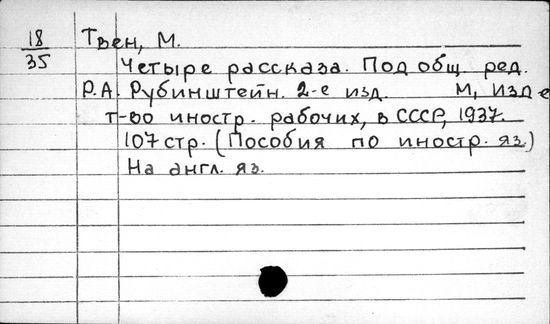 18 Твен, М.
35
Четыре рассказа. Под общ. ред.
Р.А. Рубинштейн. 2-е изд. М, Изд-
т-во иностр. рабочих, в СССР, 1937.
107 стр. (Пособия по иностр. яз.)
На англ. яз.